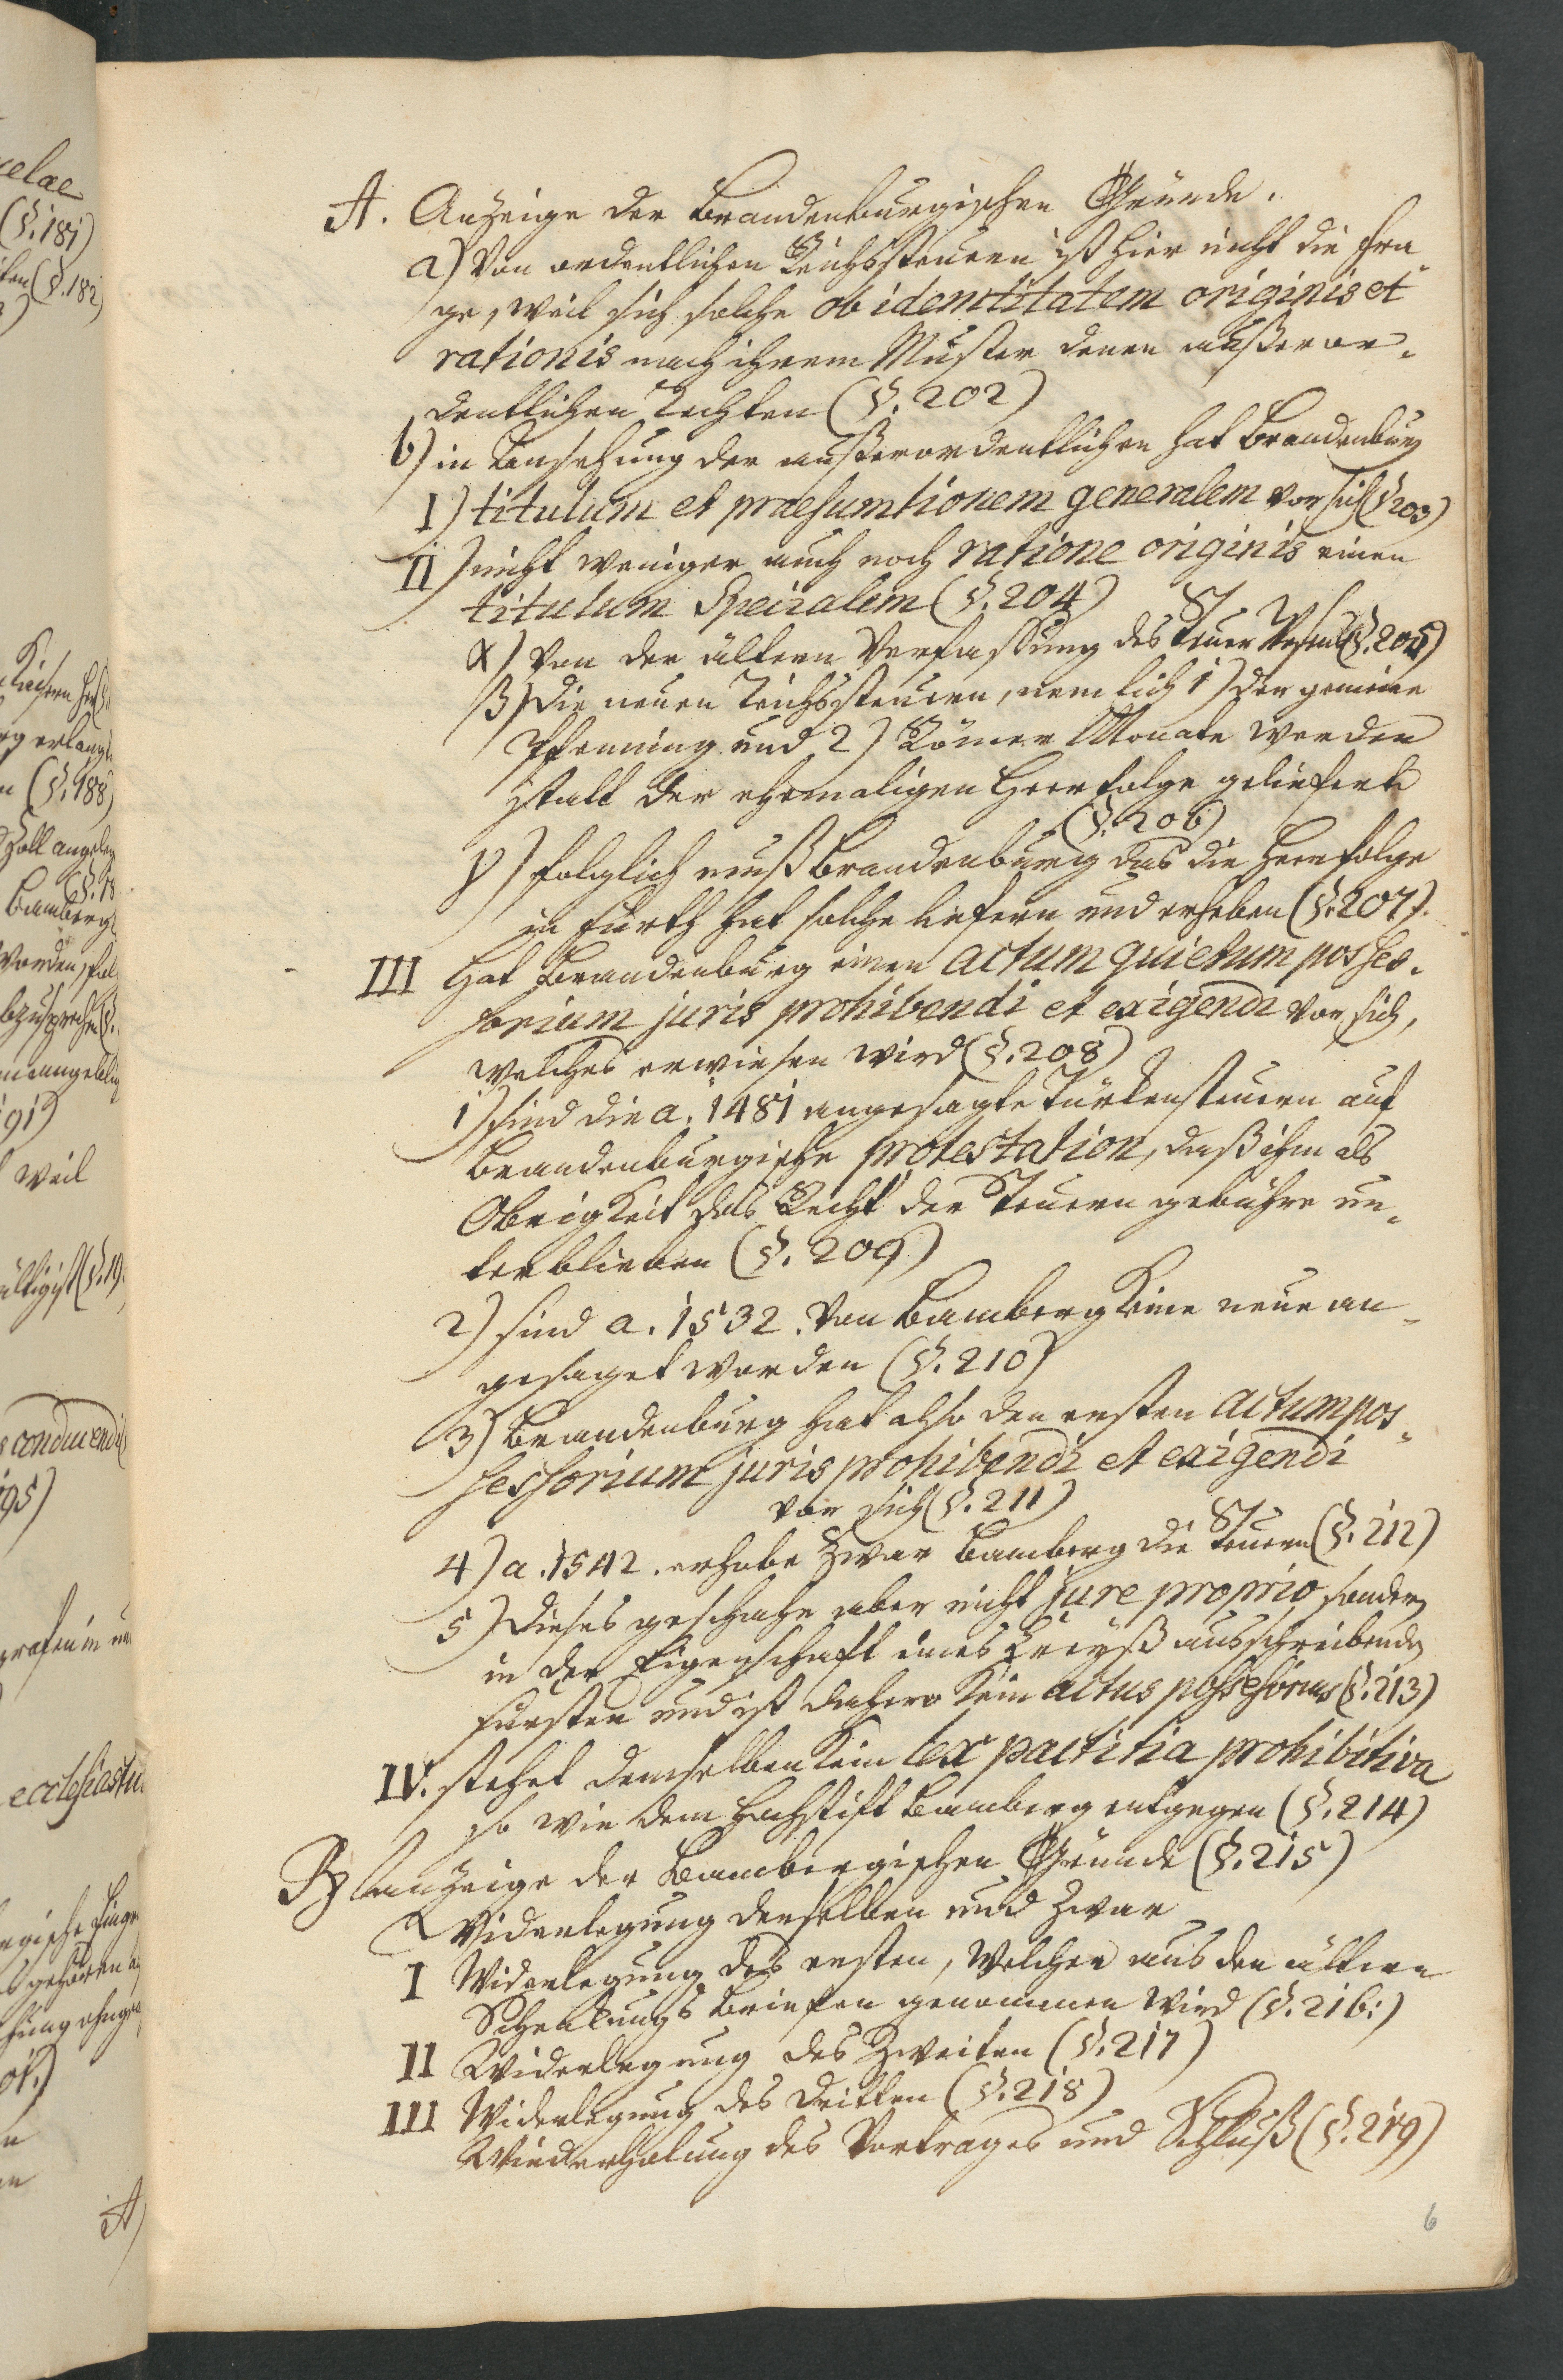 A. Anzeige der Brandenburgischen Gründe.
a) Von ordentlichen Reichssteuern ist hier nicht die Fra-
ge, weil sich solche ob identitatem originis et
rationis nach ihrem Muster denen außeror-
dentlichen richten (§. 202)
b) in Ansehung der außerordentlichen hat Brandenburg
I) titulum et praesumtionem generalem vor sich (§ 203)
II) nicht weniger auch noch ratione originis einen
titulum Specialem (§. 204)
α) Von der ältern Verfassung des Steuer Wesens (§. 205)
β) Die neuen Reichssteuern, nemlich 1) der gemeine
Pfenning und 2) Römer Monate werden
statt der ehemaligen Heerfolge geliefert
(§. 206)
γ) folglich muß Brandenburg das die Heerfolge
in Fürth hat solche liefern und erheben (§. 207).
III Hat Brandenburg einen actum quietum posses-
sorium juris prohibendi et exigendi vor sich,
welches erwiesen wird (§. 208)
1) sind die a. 1481 angesagte Türkensteuern auf
Brandenburgische protestation, daß ihm als
Obrigkeit das Recht der Steuern gebühre un-
terblieben (§. 209)
2) sind a. 1532. Von Bamberg keine neue an-
gesaget worden (§. 210)
3) Brandenburg hat also den ersten actum pos-
sessorium juris prohibendi et exigendi
vor sich (§. 211)
4) a. 1542. erhobe zwar Bamberg die Steuern (§. 212)
5) Dieses geschahe aber nicht jure proprio sondern
in der Eigenschaft eines Creyß ausschreibenden
Fürsten und ist dahero kein actus possessorius (§. 213)
IV. stehet demselben kein lex pactitia prohibitiva
so wie dem Hochstift Bamberg entgegen (§. 214)
B) Anzeige der Bambergischen Gründe (§. 215)
Widerlegung derselben und zwar
I Widerlegung des ersten, Welcher aus den ältern
Schenkungs Briefen genommen wird (§. 216:)
II Widerlegung des Zweiten (§. 217)
III Widerlegung des Dritten (§. 218)
Wiederholung des Vortrages und Schluß (§. 219)
6